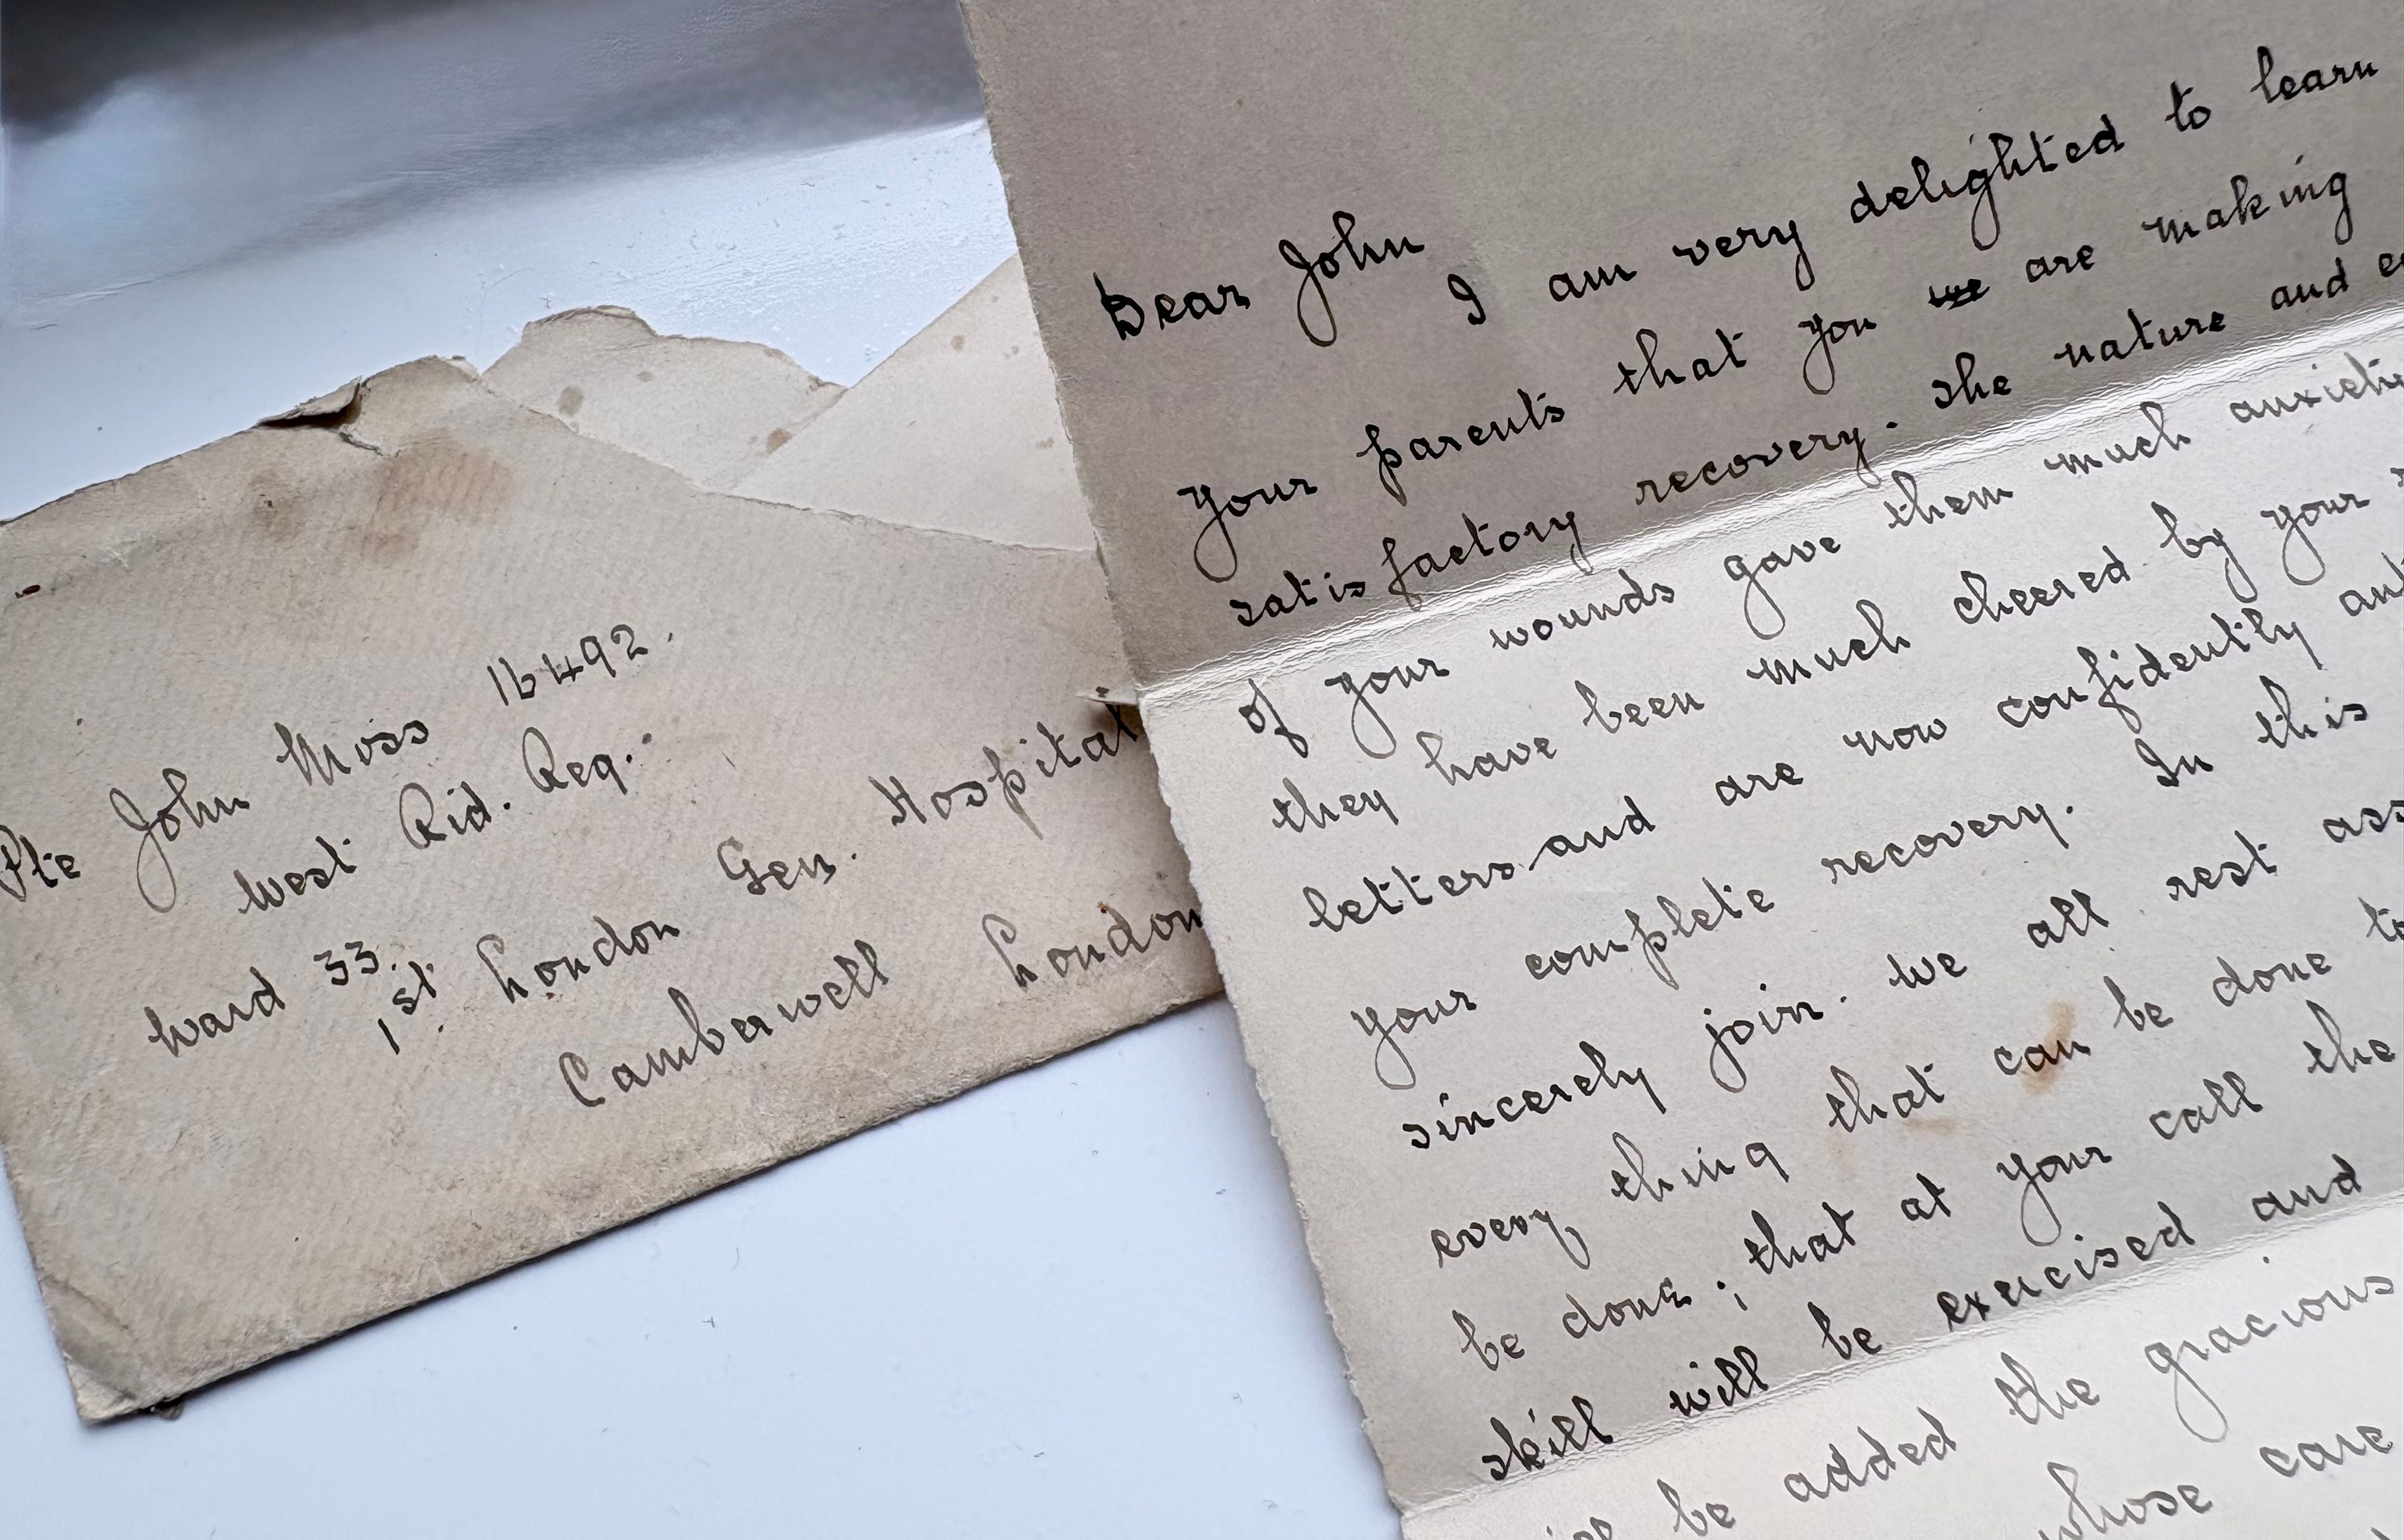 Pte John Moss 16492.
West Rid. Reg.
Ward 33.
1st London Gen. Hospital
Camberwell London
Dear John
I am very delighted to learn
your parents that you we are making
satisfactory recovery. The nature and
of your wounds gave them much anxiety
they have been much cheered by your
letters and are now confidently
your complete recovery. In this
sincerely join. We all rest
every thing that can be done to
be done; that at your call the
skill will be exercised and
be added the gracious
whose care